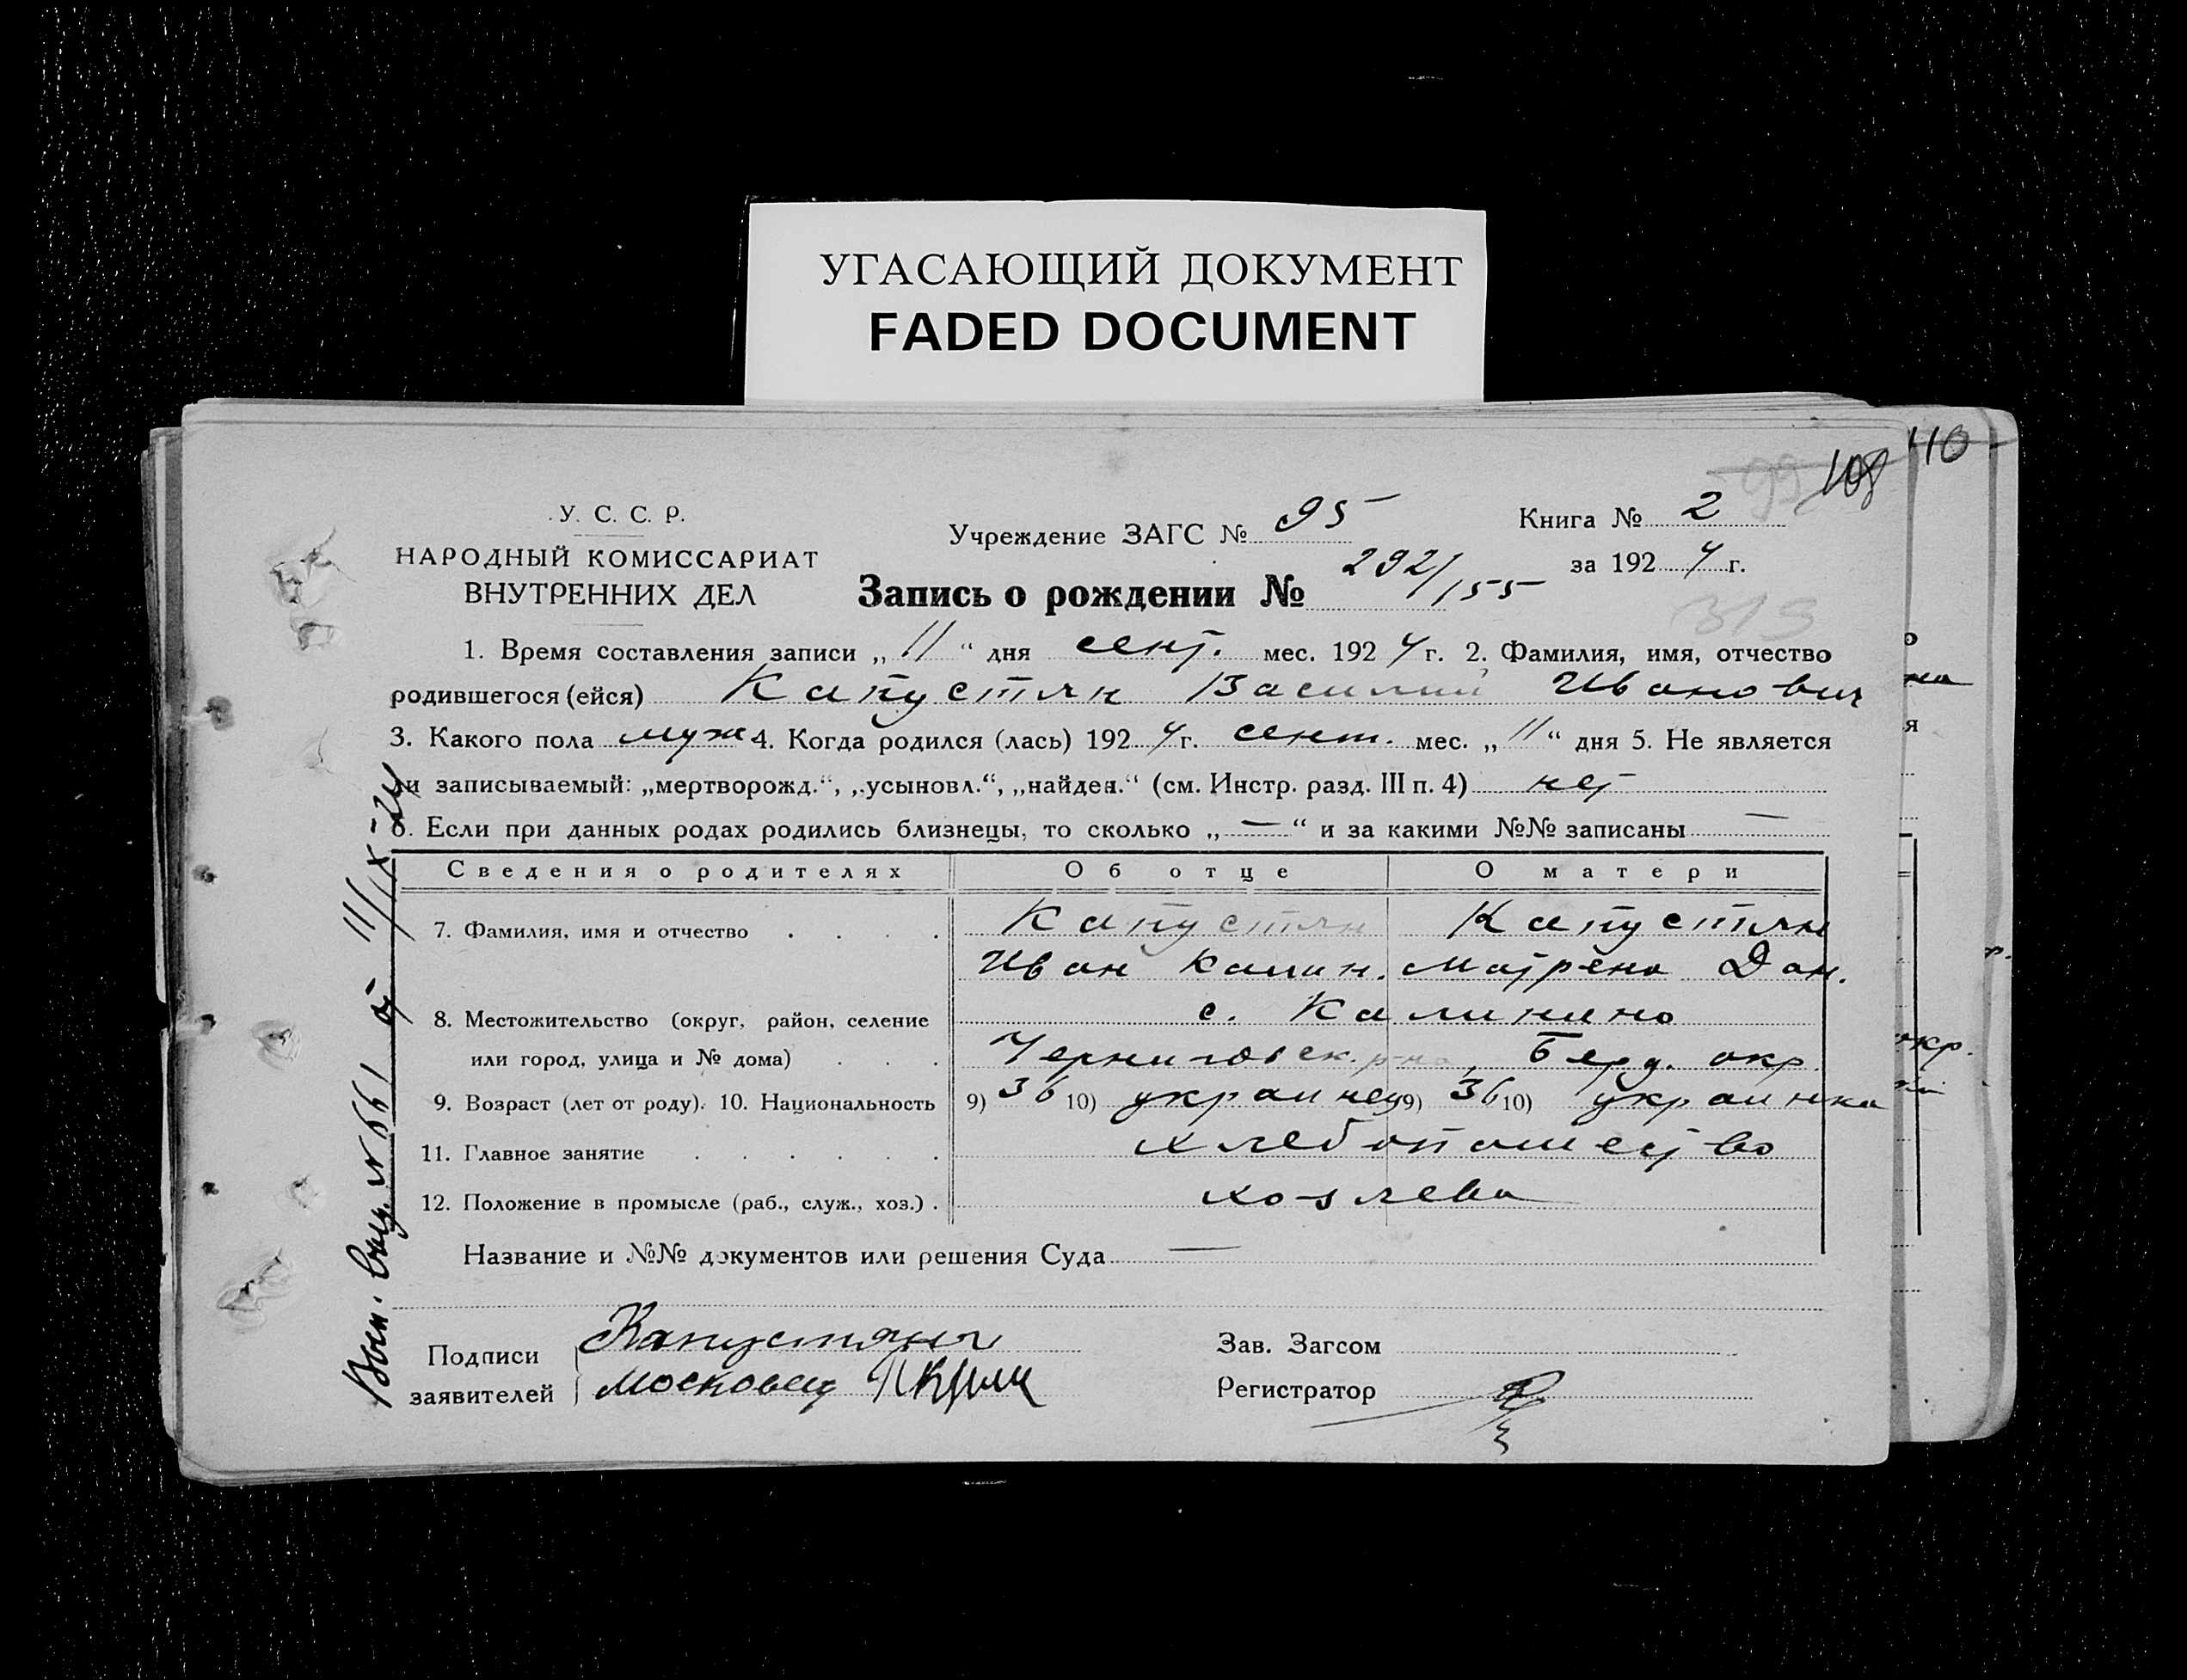 УГАСАЮЩИЙ ДОКУМЕНТ
FADED DOCUMENT
110
99 108
У. С. С. Р.
НАРОДНЫЙ КОМИССАРИАТ
ВНУТРЕННИХ ДЕЛ
Учреждение ЗАГС № 95
Книга № 2
за 1924 г.
Запись о рождении № 292/155
315
1. Время составления записи „11“ дня сент. мес. 1924 г. 2. Фамилия, имя, отчество
родившегося (ейся) Капустян Василий Иванович
3. Какого пола муж 4. Когда родился (лась) 1924 г. сент. мес. „11“ дня 5. Не является
ли записываемый: „мертворожд.“, „усыновл.“, „найден.“ (см. Инстр. разд. III п. 4) нет
6. Если при данных родах родились близнецы, то сколько „—“ и за какими №№ записаны —
Сведения о родителях Об отце О матери
7. Фамилия, имя и отчество . . . . Капустян Капустян
Иван Калин. Матрена Дан.
8. Местожительство (округ, район, селение с. Калинино
или город, улица и № дома) . . . Черниговск. р-на, Берд. окр.
9. Возраст (лет от роду). 10. Национальность 9) 36 10) украинец 9) 36 10) украинка
11. Главное занятие . . . . . . хлебопашество
12. Положение в промысле (раб., служ., хоз.) . хозяева
Название и №№ документов или решения Суда —
Подписи
заявителей
Капустянъ
Московец
Зав. Загсом
Регистратор
от 11/IX-24